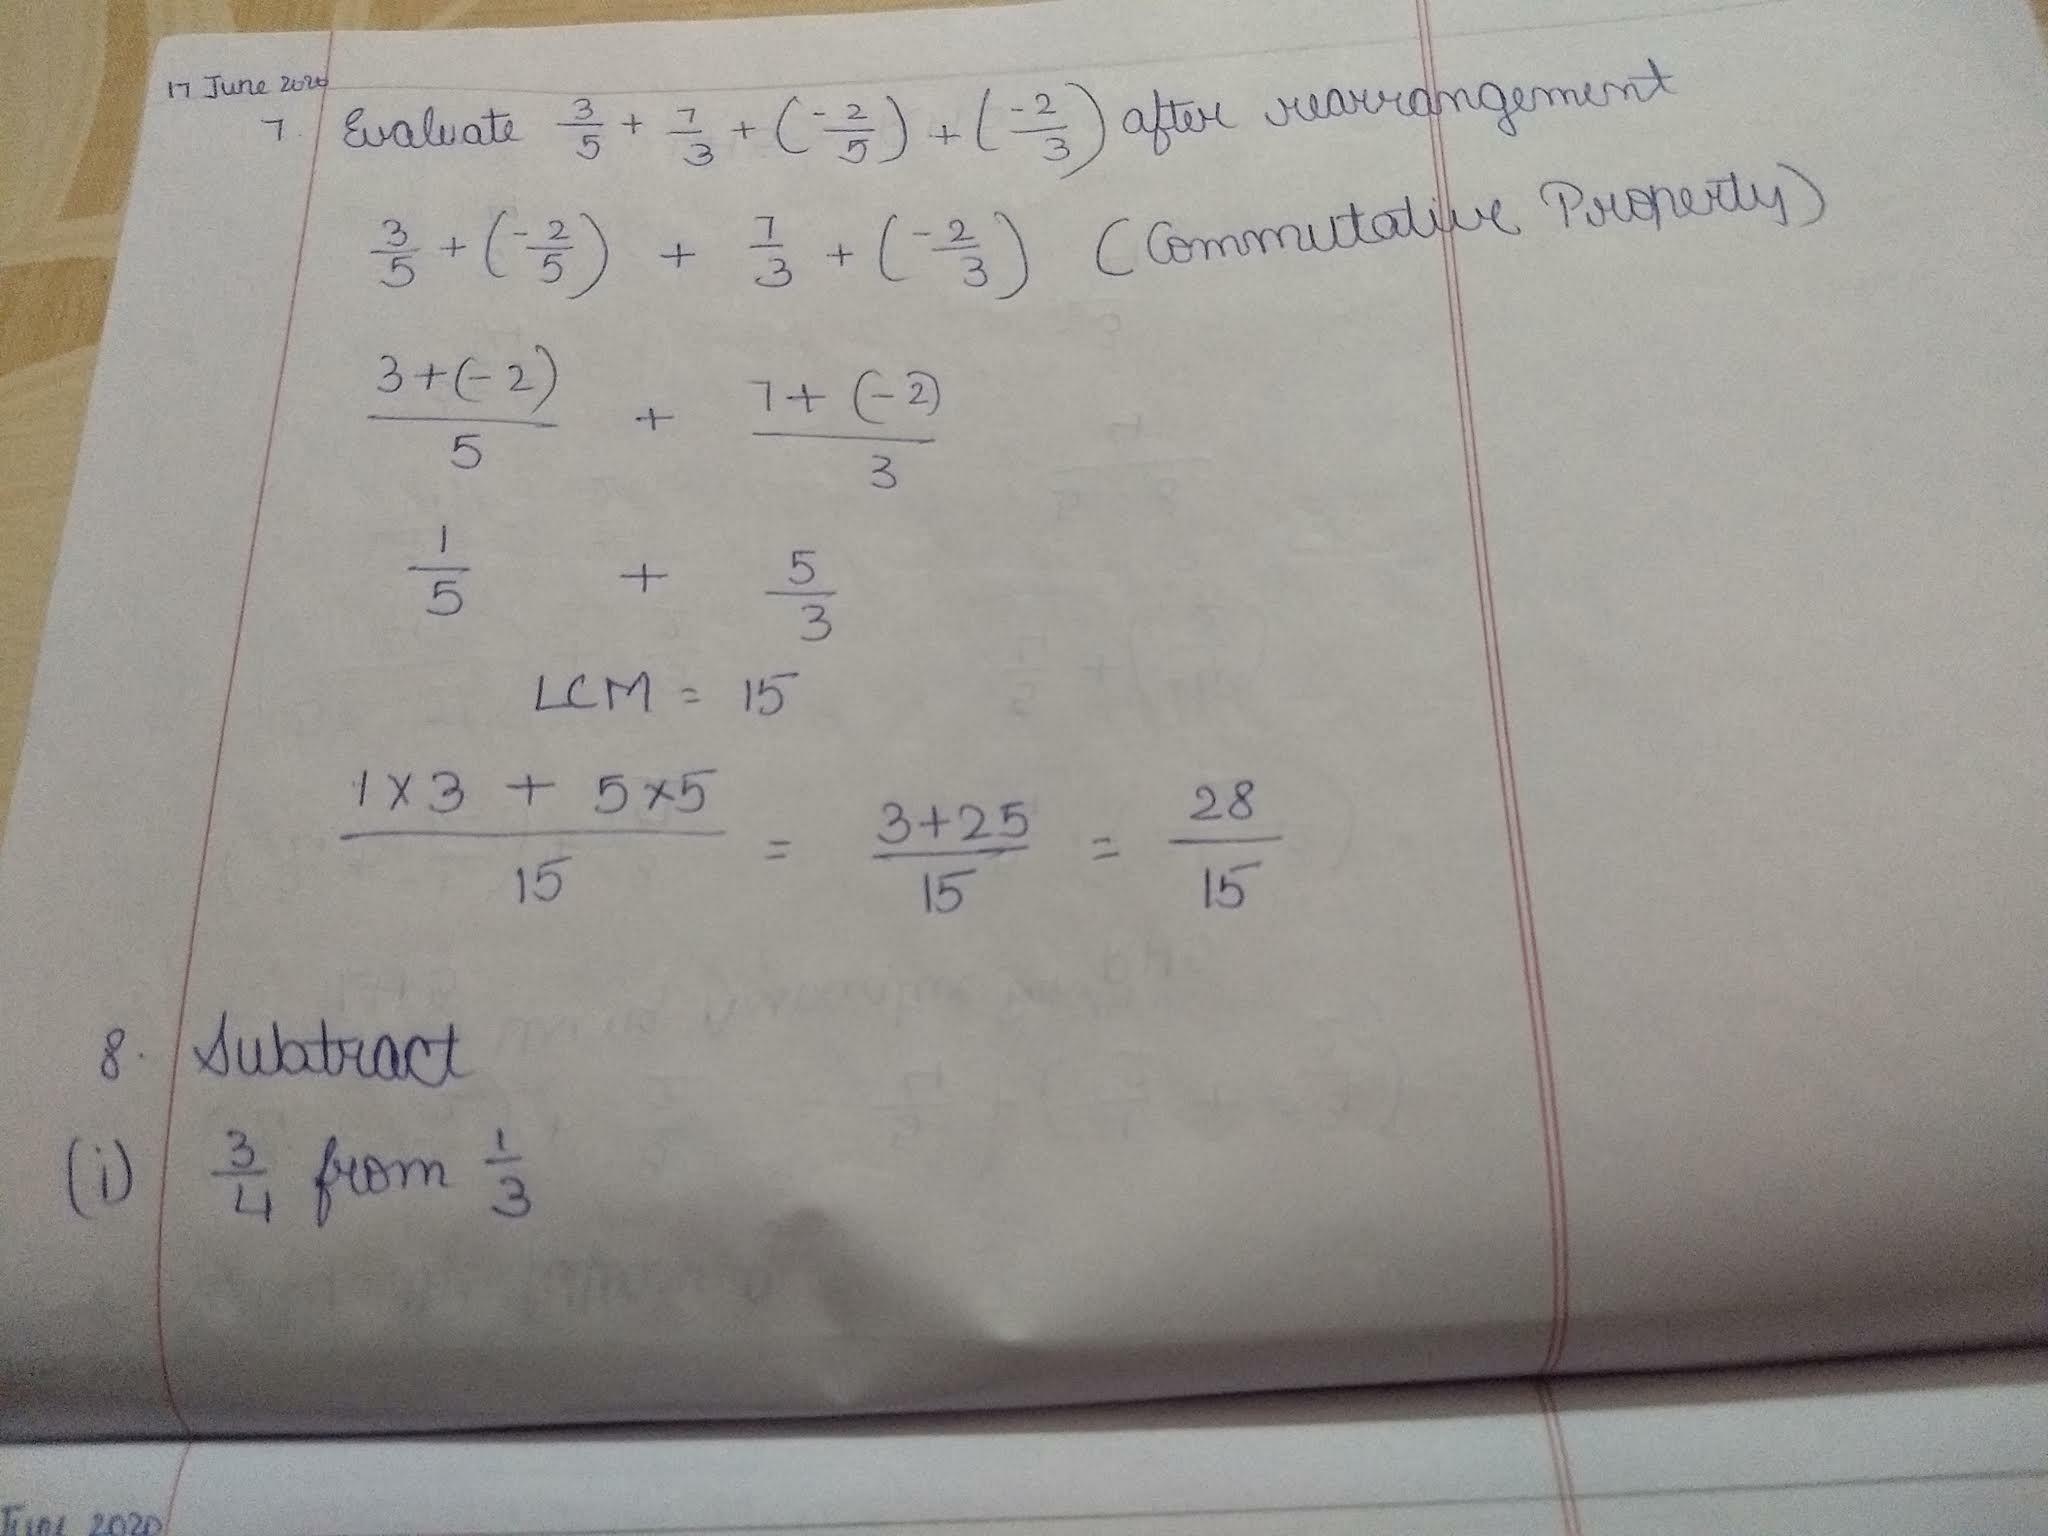 17 June 2020
7. Evaluate 3/5 + 7/3 + (-2/5) + (-2/3) after rearrangement
3/5 + (-2/5) + 7/3 + (-2/3) (Commutative Property)
3+(-2)/5 + 7+(-2)/3
1/5 + 5/3
LCM = 15
1×3 + 5×5/15 = 3+25/15 = 28/15
8. Subtract
(i) 3/4 from 1/3
June 2020